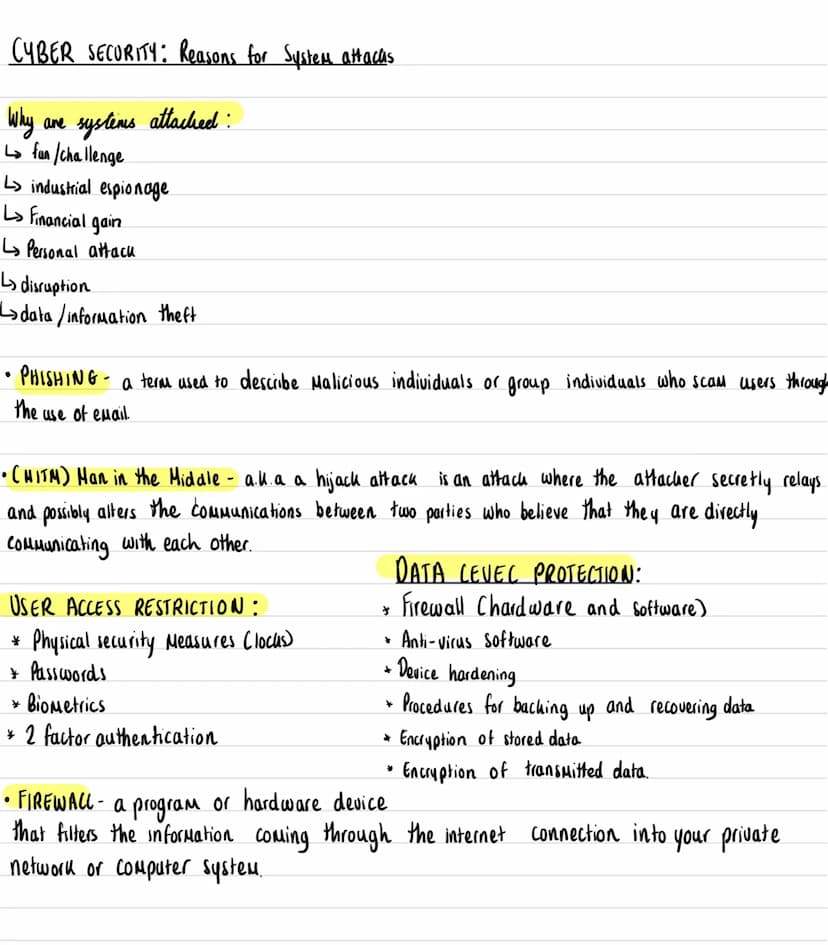 CYBER SECURITY: Reasons for System attacks
Why are systems attacked:
↳ fun/challenge
↳ industrial espionage
↳ Financial gain
↳ Personal attack
↳ disruption
↳ data/information theft
• PHISHING - a term used to describe malicious individuals or group individuals who scam users through
the use of email.
• (MITM) Man in the Middle - a.k.a a hijack attack is an attack where the attacker secretly relays
and possibly alters the communications between two parties who believe that they are directly
communicating with each other.
USER ACCESS RESTRICTION:
* Physical security measures (locks)
* Passwords
* Biometrics
* 2 factor authentication
DATA LEVEL PROTECTION:
* Firewall (hardware and software)
* Anti-virus software
* Device hardening
* Procedures for backing up and recovering data
* Encryption of stored data
* Encryption of transmitted data.
• FIREWALL - a program or hardware device
that filters the information coming through the internet connection into your private
network or computer system.